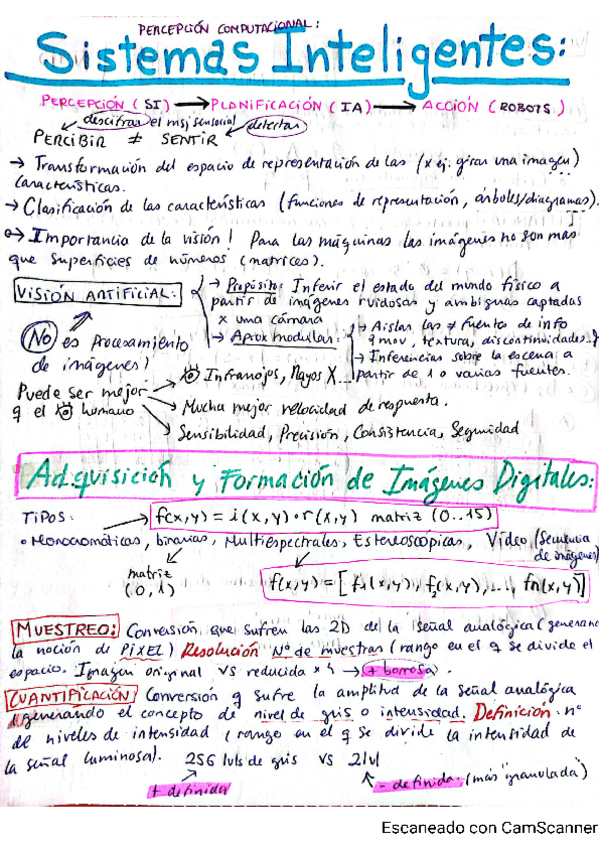 PERCEPCIÓN COMPUTACIONAL:
Sistemas Inteligentes:
PERCEPCIÓN (SI) → PLANIFICACIÓN (IA) → ACCIÓN (ROBOTS.)
descifran el msj sensorial detectar
PERCIBIR ≠ SENTIR
→ Transformación del espacio de representación de las (x ej: girar una imagen)
características.
→ Clasificación de las características (funciones de representación, árboles/diagramas).
→ Importancia de la visión! Para las máquinas las imágenes no son más
que superficies de números (matrices).
VISIÓN ARTIFICIAL:
→ Propósito: Inferir el estado del mundo físico a
partir de imágenes ruidosas y ambiguas captadas
x una cámara
→ Aprox modular:
→ Aislar las ≠ fuentes de info
mov, textura, discontinuidades
→ Inferencias sobre la escena a
partir de 1 o varias fuentes.
No es procesamiento
de imágenes!
Puede ser mejor
q el humano
Infrarrojos, Rayos X...
Mucha mejor velocidad de respuesta.
Sensibilidad, Precisión, Consistencia, Seguridad
Adquisición y Formación de Imágenes Digitales:
TIPOS: f(x,y) = i(x,y)·r(x,y) matriz (0..15)
• Monocromáticas, binarias, Multiespectrales, Estereoscópicas, Vídeo (Secuencia
de imágenes)
matriz
(0,1)
f(x,y) = [f₁(x,y), f₂(x,y), ..., fn(x,y)]
MUESTREO: Conversión que sufren las 2D de la señal analógica (generando
la noción de PÍXEL) Resolución Nº de muestras (rango en el q se divide el
espacio. Imagen original vs reducida x 4 → + borrosa.
CUANTIFICACIÓN Conversión q sufre la amplitud de la señal analógica
generando el concepto de nivel de gris o intensidad. Definición: nº
de niveles de intensidad (rango en el q se divide la intensidad de
la señal luminosa). 256 lvls de gris vs 2 lvl
+ definida
- definida. (más "granulada")
Escaneado con CamScanner